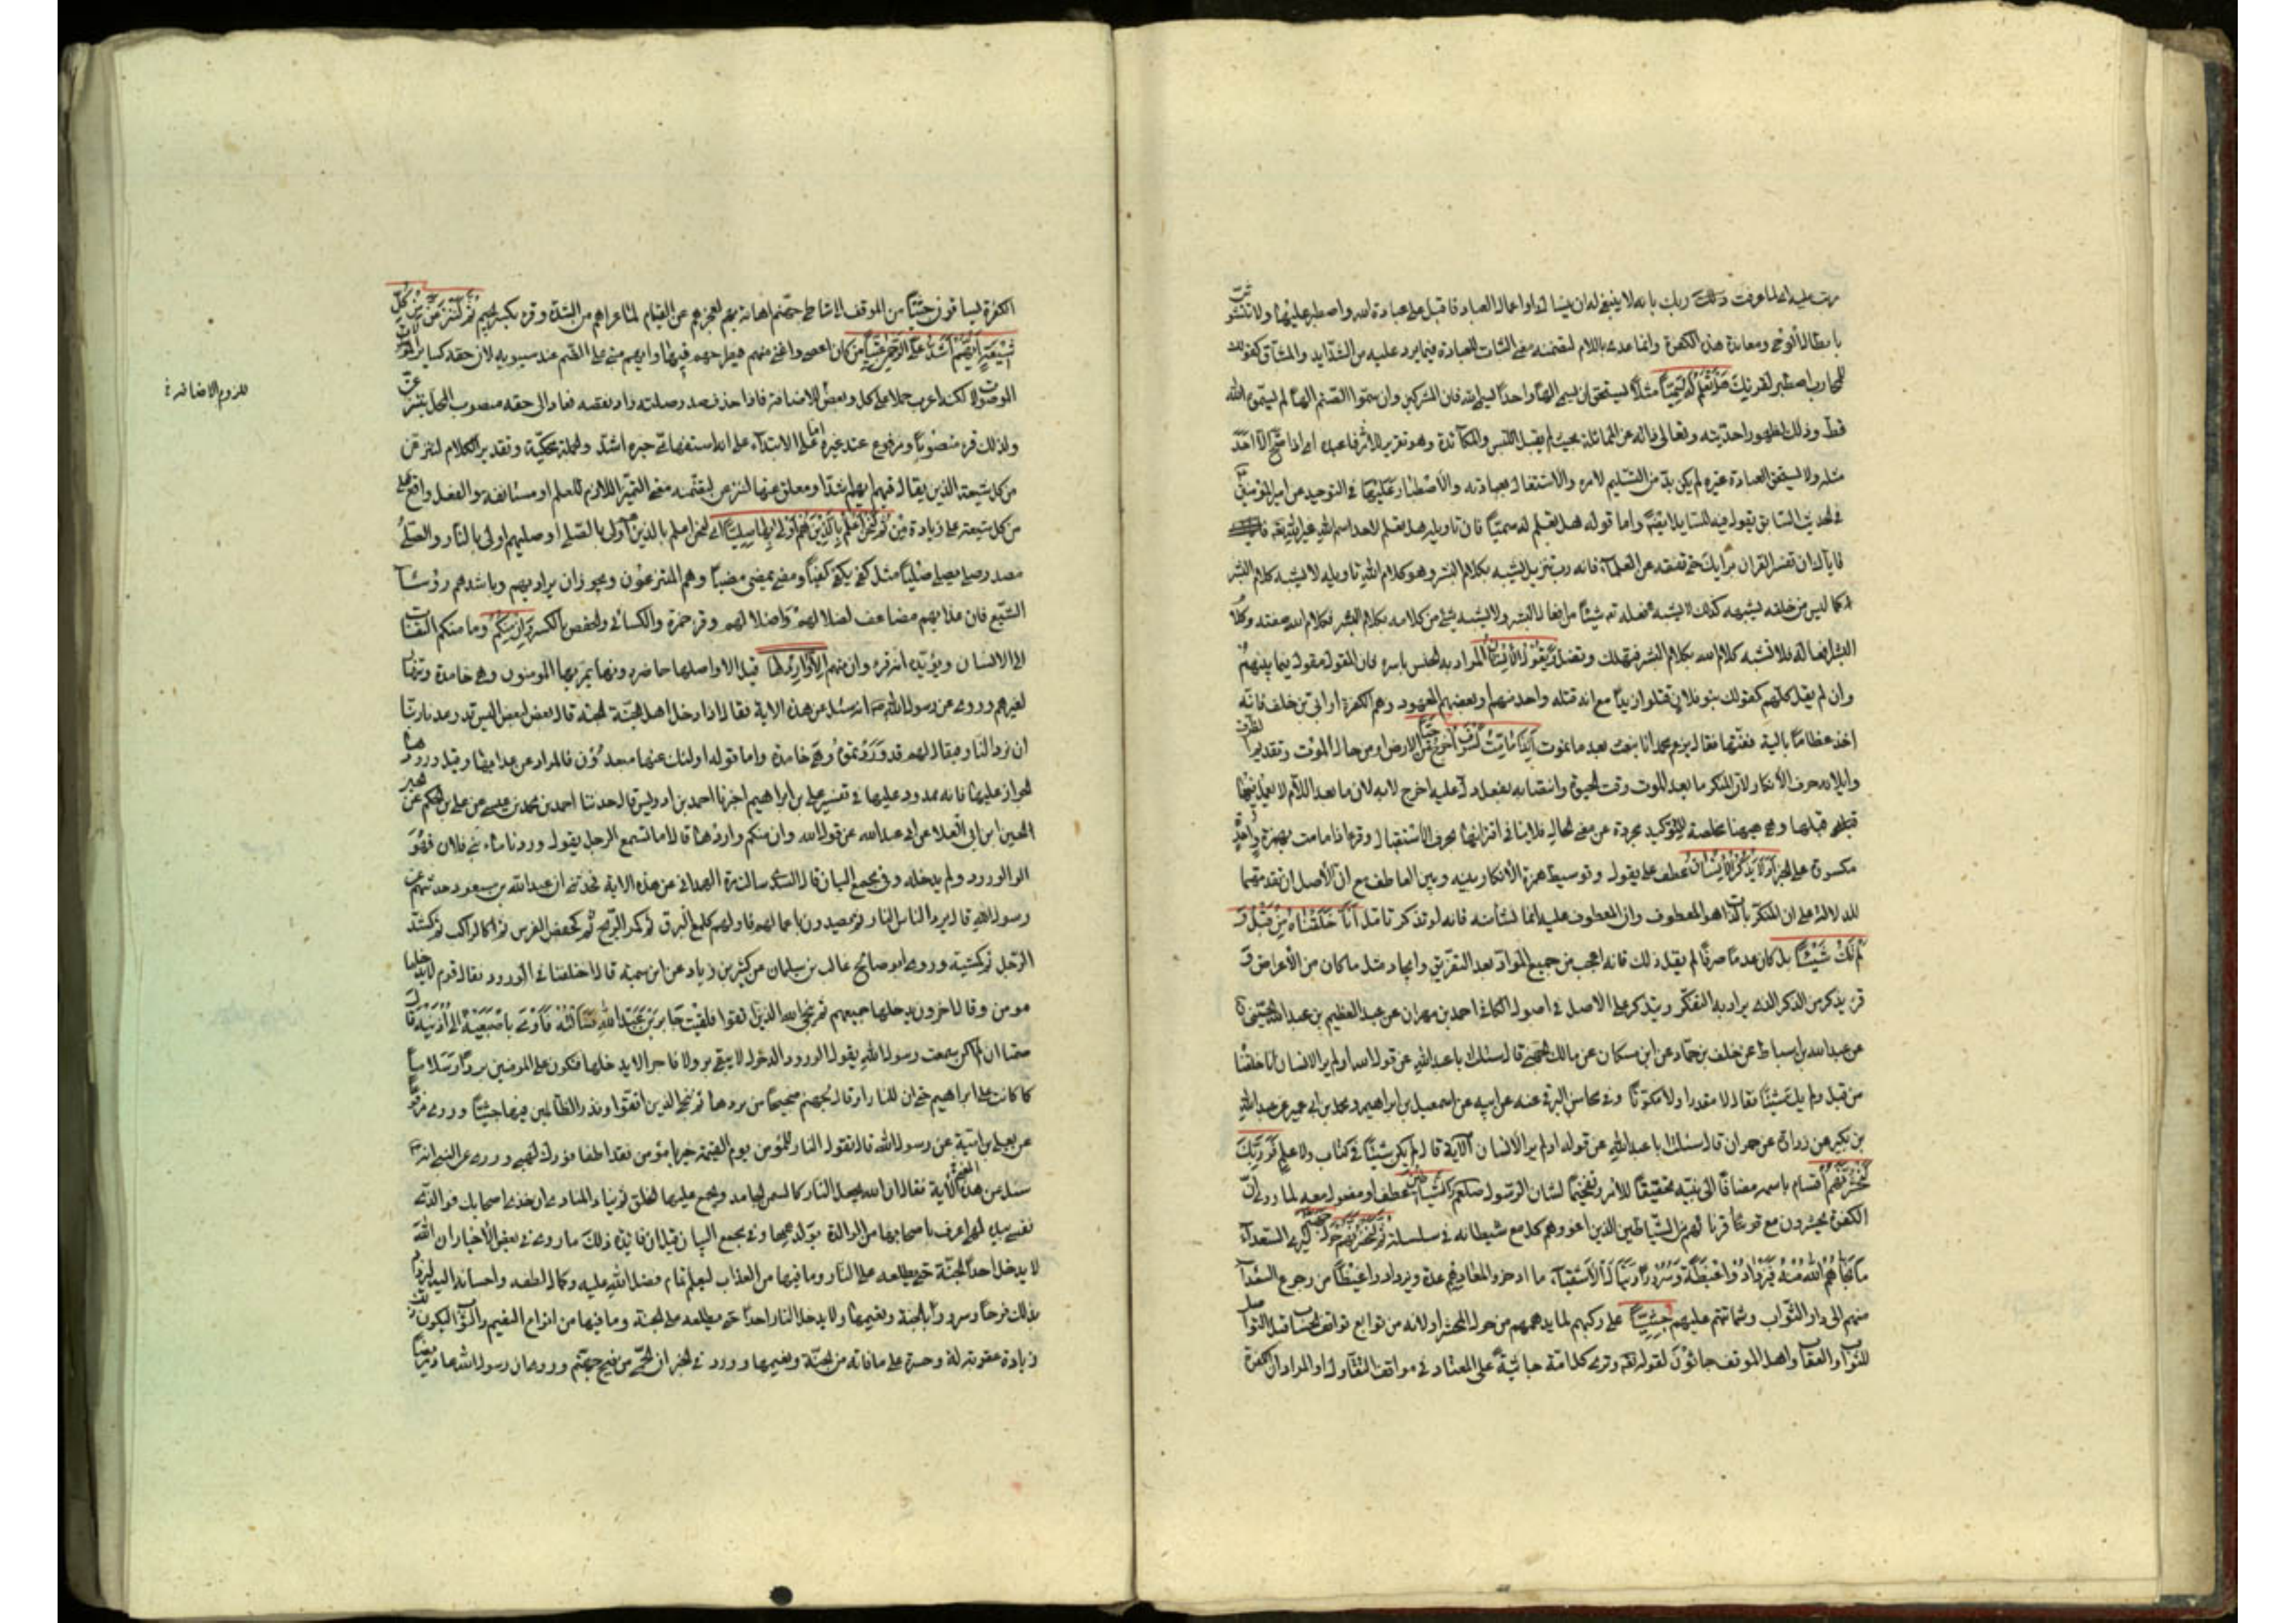 مرتب عليه اي لما عرفت ذلك ربك بانه لا ينبغي له ان ينساك او اعمال العباد فاقبل على عبادة الله واصطبر عليها ولا تتشوش
بابطاء الوحي ومعاندة هذي الكفرة وانما عدى باللام لتضمنه معنى الثبات للعبادة فيما يرد عليه من الشدايد والمشاق كقولك
للمحارب اصطبر لقرنك هَلْ تَعْلَمُ لَهُ سَمِيًّا مثلا يستحق ان يسمى الها واحدا ليس الله فان المشركين وان سموا الصنم الها لم يسموه الله
قط وذلك لظهور احديته وتعالى ذاته عن المماثلة بحيث لم يقبل اللبس والمكابرة وهو تقرير للامر فاعبد اي اذا صح ان لا احد
مثله ولا يستحق العبادة غيره لم يكن بد من التسليم لامره والاشتغال بعبادته والاصطبار عليها في التوحيد عن امير المؤمنين
في الحديث السابق يقول فيه للسايل واما قوله هل تعلم له سميا فان تاويله هل تعلم لاحد اسم الله غير الله
فاياك ان تفسر القران برايك حتى تفقهه عن العلماء فانه رب تنزيل يشبه بكلام البشر وهو كلام الله وتاويله لا يشبه كلام البشر
كما ليس من خلقه يشبهه كذلك لا يشبه فعله شيئا من افعال البشر ولا يشبه شيئ من كلامه بكلام البشر فكلام الله صفته وكلام
البشر افعالهم فلا تشبه كلام الله بكلام البشر فتهلك وتضل وَيَقُولُ الْإِنْسَانُ المراد به الجنس باسره فان المقول مقول فيما بينهم
وان لم يقل كلهم كقولك بنو فلان قتلوا زيدا مع انه قتله واحد منهم او بعضهم المعهود وهم الكفرة او ابي بن خلف فانه
اخذ عظاما بالية ففتها فقال يزعم محمد انا نبعث بعد ما نموت أَئِذَا مَا مِتُّ لَسَوْفَ أُخْرَجُ حَيًّا من الارض او من حال الموت وتقديم الظرف
وايلاؤه حرف الانكار لان المنكر ما بعد الموت وقت الحيوة وانتصابه بفعل دل عليه اخرج لا به لان ما بعد اللام لا يعمل فيما
قبلها وهي ههنا مخلصة للتوكيد مجردة عن معنى الحال فلا ينافي اقترانها بحرف الاستقبال وقرئ اذا ما مت بهمزة واحدة
مكسورة على الخبر أَوَلَا يَذْكُرُ الْإِنْسَانُ عطف على يقول وتوسيط همزة الانكار بينه وبين العاطف مع ان الاصل ان تقدمهما
للدلالة على ان المنكر بالذات هو المعطوف وان المعطوف عليه انما نشأ منه فانه لو تذكر تامل أَنَّا خَلَقْنَاهُ مِنْ قَبْلُ وَ
لَمْ يَكُ شَيْئًا بل كان عدما صرفا لم يقل ذلك فانه اعجب من جميع المواد بعد التفريق وايجاد مثل ما كان من الاعراض و
قرئ يذكر من الذكر الذي يراد به التفكر ويتذكر على الاصل في اصول الكافي احمد بن مهران عن عبد العظيم بن عبد الله الحسني
عن عبد الله بن اسباط عن خلف بن حماد عن ابن مسكان عن مالك الجهني قال سئلت ابا عبد الله عن قول الله اولم ير الانسان انا خلقناه
من قبل ولم يك شيئا فقال لا مقدرا ولا مكونا وفي محاسن البرقي عنه عن ابيه عن اسمعيل بن ابراهيم ومحمد بن ابي عمير عن عبد الله
بن بكير عن زرارة عن حمران قال سئلت ابا عبد الله عن قوله اولم ير الانسان الاية قال لم يكن شيئا في كتاب ولا علم فَوَرَبِّكَ
لَنَحْشُرَنَّهُمْ اقسام باسمه مضافا الى نبيه تحقيقا للامر وتفخيما لشان الرسول صلعم وَالشَّيَاطِينَ عطف او مفعول معه لما روي ان
الكفرة يحشرون مع قرنائهم من الشياطين الذين اغووهم كل مع شيطانه في سلسلة ثُمَّ لَنُحْضِرَنَّهُمْ حَوْلَ جَهَنَّمَ ليرى السعداء
ما نجاهم الله منه فيزدادوا غبطة وسرورا وينال الاشقياء ما ادخروا لمعادهم عدة ويزدادوا غيظا من رجوع السعداء
منهم الى دار الثواب وشماتتهم عليهم جِثِيًّا على ركبهم لما يدهمهم من هول المحشر او لانه من توابع تواقف الحساب قبل التواصل
للثواب والعقاب واهل الموقف جاثون لقوله تعالى وترى كل امة جاثية على المعتاد في مواقف التقاول او المراد ان الكفرة
الكفرة يساقون جثيا من الموقف الى شاطئ جهنم اهانة بهم لعجزهم عن القيام لما عراهم من الشدة وقرئ بكسر الجيم ثُمَّ لَنَنْزِعَنَّ مِنْ كُلِّ
شِيعَةٍ أَيُّهُمْ أَشَدُّ عَلَى الرَّحْمَنِ عِتِيًّا من كان اعصى واعتى منهم فيطرحهم فيها وايهم مبني على الضم عند سيبويه لان حقه كساير الموصولات
الموصولات لكنه اعرب حملا على كل وبعض للزوم الاضافة فاذا حذف صدر صلته زاد نقصه فعاد الى حقه منصوب المحل بننزعن
ولذلك قرئ منصوبا ومرفوع عند غيره اما على الابتداء على انه استفهامي خبره اشد والجملة محكية وتقدير الكلام لننزعن
من كل شيعة الذين يقال فيهم ايهم اشد او معلق عنها لننزعن لتضمنه معنى التميز اللازم للعلم او مستانفة والفعل واقع على
من كل شيعة على زيادة من ثُمَّ لَنَحْنُ أَعْلَمُ بِالَّذِينَ هُمْ أَوْلَى بِهَا صِلِيًّا اي لنحن اعلم بالذين هم اولى بالصلي او صليهم اولى بالنار والصلي
مصدر صلى يصلى صليا مثل كفى يكفى كفيا ومضى يمضى مضيا وهم المنتزعون ويجوز ان يراد بهم وباشدهم رؤساء
الشيع فان عذابهم مضاعف لضلالهم واضلالهم وقرء حمزة والكسائي وحفص بالكسر وَإِنْ مِنْكُمْ وما منكم التفات
الى الانسان ويؤيده انه قرئ وان منهم إِلَّا وَارِدُهَا قيل الا واصلها حاضر دونها يمر بها المؤمنون وهي خامدة وتنهار
لغيرهم وروي عن رسول الله انه سئل عن هذه الاية فقال اذا دخل اهل الجنة الجنة قال بعضهم لبعض اليس قد وعدنا ربنا
ان نرد النار فيقال لهم قد وردتموها وهي خامدة واما قوله اولئك عنها مبعدون فالمراد عن عذابها وقيل ورودها
الجواز عليها فانه ممدود عليها في تفسير علي بن ابراهيم اخبرنا احمد بن ادريس قال حدثنا احمد بن محمد بن عيسى عن علي بن الحكم عن
الحسين ابن ابي العلا عن ابي عبد الله عن قول الله وان منكم الا واردها قال اما تسمع الرجل يقول وردنا ماء بني فلان فهو
الورود ولم يدخله وفي مجمع البيان قال السدي سالت مرة الهمداني عن هذه الاية فحدثني ان عبد الله بن مسعود حدثهم عن
رسول الله قال يرد الناس النار ثم يصدرون باعمالهم فاولهم كلمع البرق ثم كمر الريح ثم كحضر الفرس ثم كالراكب ثم كشد
الرجل ثم كمشيه وروى ابو صالح غالب بن سليمان عن كثير بن زياد عن ابي سمية قال اختلفنا في الورود فقال قوم لا يدخلها
مومن وقال اخرون يدخلها جميعهم ثم ينجي الله الذين اتقوا فلقيت جابر بن عبد الله فسألته فاومى باصبعيه الى اذنيه قال
صمتا ان لم اكن سمعت رسول الله يقول الورود الدخول لا يبقى بر ولا فاجر الا يدخلها فتكون على المومنين بردا وسلاما
كما كانت على ابراهيم حتى ان للنار او قال لجهنم ضجيجا من بردها ثم ننجي الذين اتقوا ونذر الظالمين فيها جثيا وروي مرفوعا
عن يعلى بن امية عن رسول الله قال تقول النار للمؤمن يوم القيمة جز يا مؤمن فقد اطفا نورك لهبي وروي عن النبي انه
سئل عن معنى هذه الاية فقال ان الله يجعل النار كالسمن الجامد ويجمع عليها الخلق ثم ينادي المنادي ان خذي اصحابك فوالذي
نفسي بيده لهي اعرف باصحابها من الوالدة بولدها وفي مجمع البيان قيل ان فائدة ذلك ما روي في بعض الاخبار ان الله
لا يدخل احدا الجنة حتى يطلعه على النار وما فيها من العذاب ليعلم تمام فضل الله عليه وكمال لطفه واحسانه اليه فيزداد
بذلك فرحا وسرورا بالجنة ونعيمها ولا يدخل النار احدا حتى يطلعه على الجنة وما فيها من انواع النعيم والثواب ليكون ذلك
زيادة عقوبة له وحسرة على ما فاته من الجنة ونعيمها وورد في الخبر ان الحمى من فيح جهنم وروي ان رسول الله عاد مريضا
للزوم الاضافة